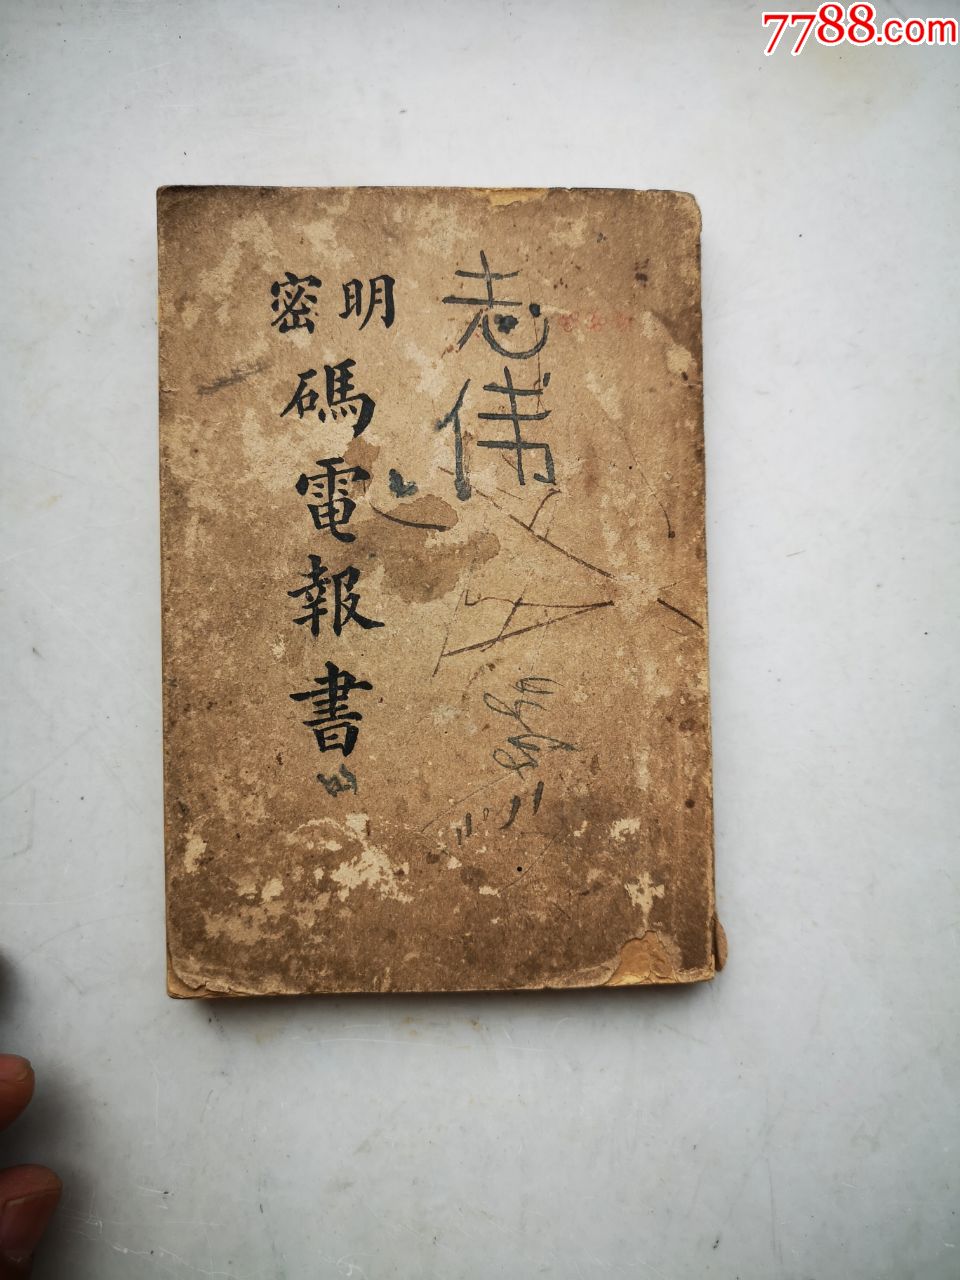 7788.com
明密
碼電報書
志伟